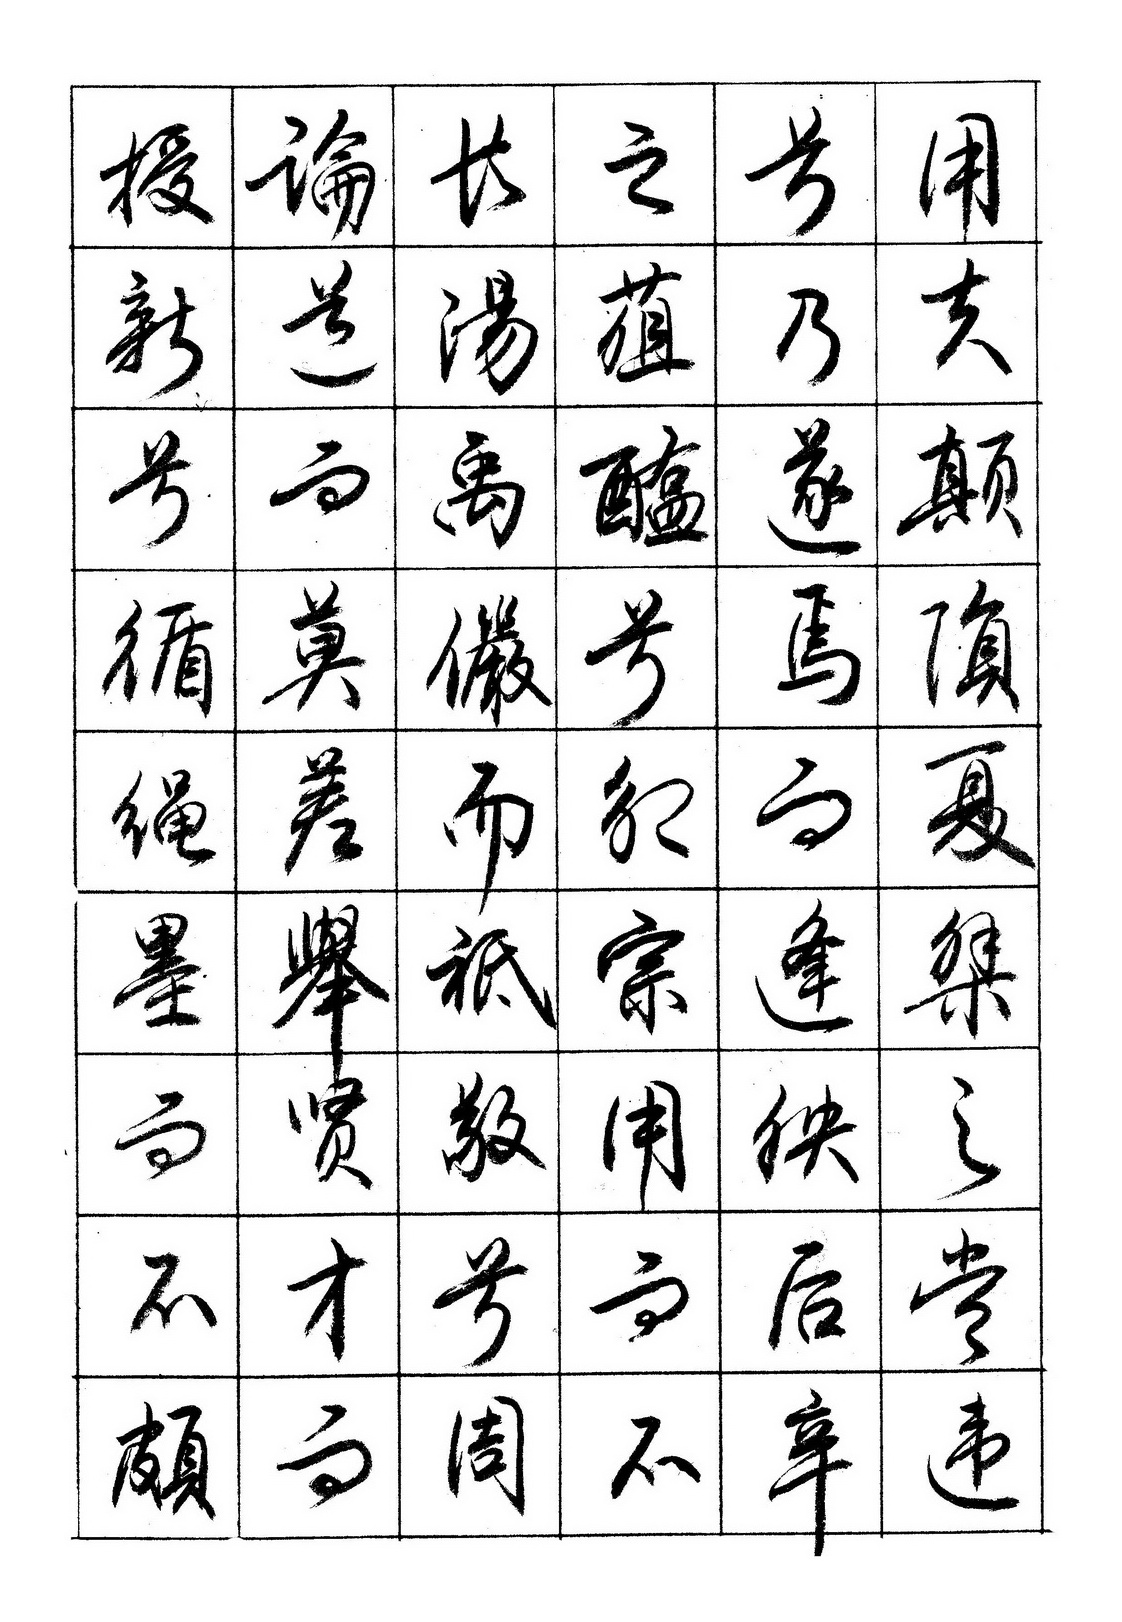 用夫顛隕夏桀之常违
兮乃遂焉而逢殃后辛
之菹醢兮殷宗用而不
长湯禹儼而祗敬兮周
論道而莫差舉贤才而
授新兮循绳墨而不頗